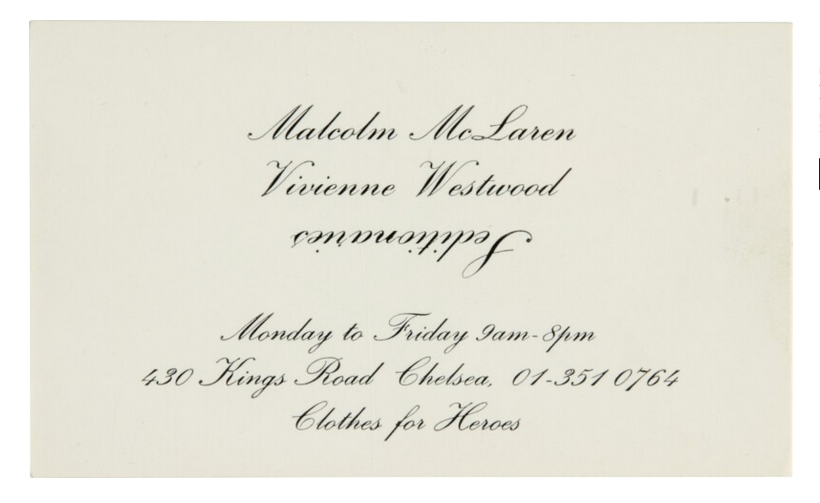 Malcolm McLaren
Vivienne Westwood
Seditionaries
Monday to Friday 9am-8pm
430 Kings Road Chelsea, 01-351 0764
Clothes for Heroes